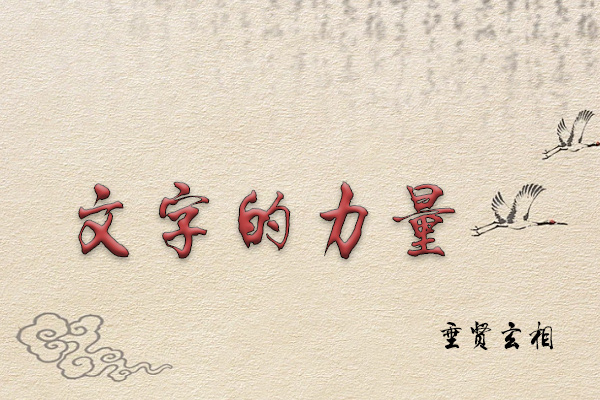 文字的力量
垂贤玄相